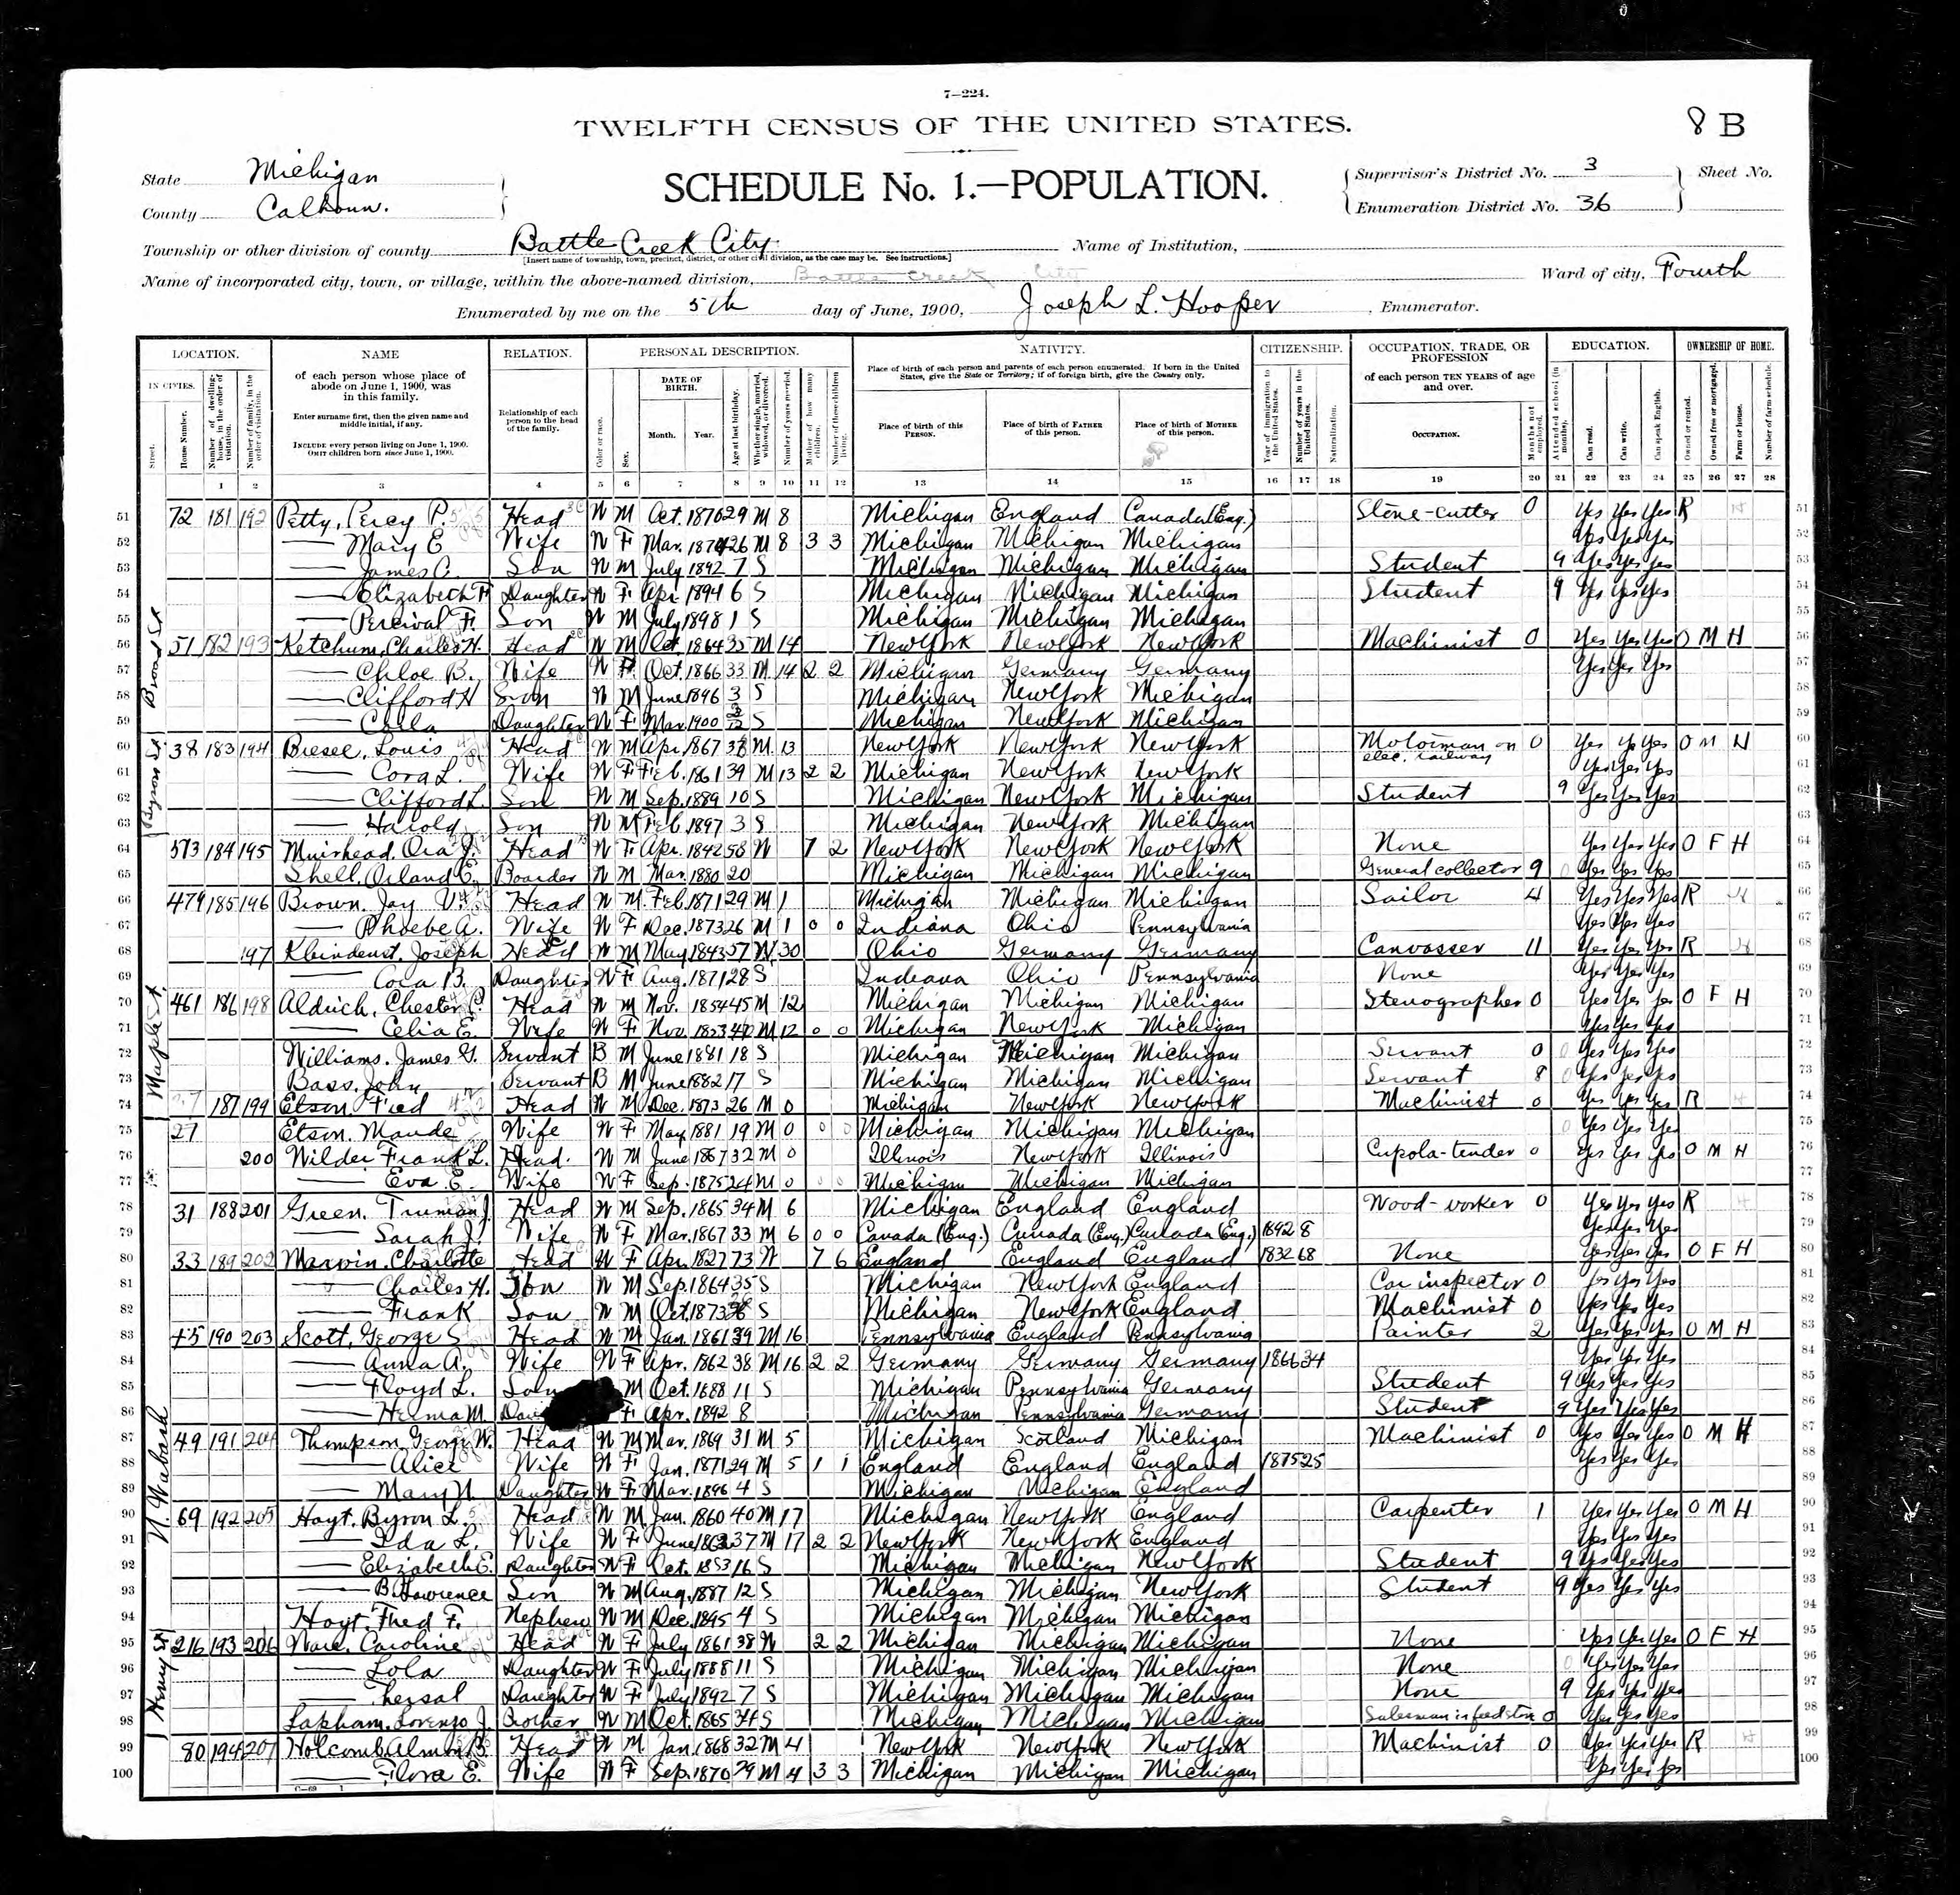 7—224.
TWELFTH CENSUS OF THE UNITED STATES.
8 B
State Michigan
County Calhoun.
SCHEDULE No. 1.—POPULATION.
Supervisor's District No. 3
Enumeration District No. 36
Sheet No.
Township or other division of county Battle Creek City.
[Insert name of township, town, precinct, district, or other civil division, as the case may be. See instructions.]
Name of Institution,
Name of incorporated city, town, or village, within the above-named division, Battle Creek City
Ward of city, Fourth
Enumerated by me on the 5th day of June, 1900, Joseph L. Hooper, Enumerator.
LOCATION. NAME RELATION. PERSONAL DESCRIPTION. NATIVITY. CITIZENSHIP. OCCUPATION, TRADE, OR PROFESSION EDUCATION. OWNERSHIP OF HOME.
IN CITIES. Street. House Number. Number of dwelling-house, in the order of visitation. Number of family, in the order of visitation.
of each person whose place of abode on June 1, 1900, was in this family.
Enter surname first, then the given name and middle initial, if any.
INCLUDE every person living on June 1, 1900. OMIT children born since June 1, 1900.
Relationship of each person to the head of the family.
Color or race. Sex. DATE OF BIRTH. Month. Year. Age at last birthday. Whether single, married, widowed, or divorced. Number of years married. Mother of how many children. Number of these children living.
Place of birth of each person and parents of each person enumerated. If born in the United States, give the State or Territory; if of foreign birth, give the Country only.
Place of birth of this PERSON. Place of birth of FATHER of this person. Place of birth of MOTHER of this person.
Year of immigration to the United States. Number of years in the United States. Naturalization.
of each person TEN YEARS of age and over.
OCCUPATION. Months not employed.
Attended school (in months). Can read. Can write. Can speak English.
Owned or rented. Owned free or mortgaged. Farm or house. Number of farm schedule.
1 2 3 4 5 6 7 8 9 10 11 12 13 14 15 16 17 18 19 20 21 22 23 24 25 26 27 28
51 72 181 192 Petty, Percy P. Head W M Oct. 1870 29 M 8 Michigan England Canada (Eng.) Stone-cutter 0 Yes Yes Yes R H 51
52 — Mary E Wife W F Mar. 1874 26 M 8 3 3 Michigan Michigan Michigan Yes Yes Yes 52
53 — James Son W M July 1892 7 S Michigan Michigan Michigan Student 9 Yes Yes Yes 53
54 — Elizabeth F Daughter W F Apr 1894 6 S Michigan Michigan Michigan Student 9 Yes Yes Yes 54
55 — Percival F. Son W M July 1898 1 S Michigan Michigan Michigan 55
Broad St
56 51 182 193 Ketchum, Charles H. Head W M Oct. 1864 35 M 14 New York New York New York Machinist 0 Yes Yes Yes O M H 56
57 — Chloe B. Wife W F. Oct. 1866 33 M 14 2 2 Michigan Germany Germany Yes Yes Yes 57
58 — Clifford H Son W M June 1896 3 S Michigan New York Michigan 58
59 — Daughter W F Mar. 1900 S Michigan New York Michigan 59
Byron St
60 38 183 194 Louis Head W M Apr 1867 M. 13 New York New York New York Motorman on elec. railway 0 Yes Yes Yes O M H 60
61 — Cora L. Wife W F Feb. 1861 39 M 13 2 2 Michigan New York New York Yes Yes Yes 61
62 — Clifford L. Son W M Sep. 1889 10 S Michigan New York Michigan Student 9 Yes Yes Yes 62
63 — Harold Son W M Feb. 1897 3 S Michigan New York Michigan 63
64 513 184 195 Muirhead, Ora J. Head W F. Apr. 1842 58 W 7 2 New York New York New York None Yes Yes Yes O F H 64
65 Shell, Orland C. Boarder W M Mar. 1880 20 Michigan Michigan Michigan General collector 9 0 Yes Yes Yes 65
66 479 185 196 Brown, Jay V. Head W M Feb. 1871 29 M 1 Michigan Michigan Michigan Sailor 4 Yes Yes Yes R H 66
67 — Phoebe A. Wife W F Dec. 1873 26 M 1 0 0 Indiana Ohio Pennsylvania Yes Yes Yes 67
68 197 Kleindenst, Joseph Head W M May 1843 57 W 30 Ohio Germany Germany Canvasser 11 Yes Yes Yes R H 68
69 — Cora B. Daughter W F. Aug. 1871 28 S Indiana Ohio Pennsylvania None Yes Yes Yes 69
Maple St.
70 461 186 198 Aldrich, Chester C. Head W M Nov. 1854 45 M 12 Michigan Michigan Michigan Stenographer 0 Yes Yes Yes O F H 70
71 — Celia E. Wife W F Nov. 1853 M 12 0 0 Michigan New York Michigan Yes Yes Yes 71
72 Williams, James G. Servant B M June 1881 18 S Michigan Michigan Michigan Servant 0 0 Yes Yes Yes 72
73 Bass, John Servant B M June 1882 17 S Michigan Michigan Michigan Servant 8 0 Yes Yes Yes 73
74 27 187 199 Etson Fred Head W M Dec. 1873 26 M 0 Michigan New York New York Machinist 0 Yes Yes Yes R H 74
75 27 Etson, Maude Wife W F. May 1881 19 M 0 0 0 Michigan Michigan Michigan 0 Yes Yes Yes 75
76 200 Wilder Frank L. Head. W M June 1867 32 M 0 Illinois New York Illinois Cupola-tender 0 Yes Yes Yes O M H 76
77 — Eva E. Wife W F Sep. 1875 24 M 0 0 0 Michigan Michigan Michigan 77
78 31 188 201 Green, Truman J. Head W M Sep. 1865 34 M 6 Michigan England England Wood-worker 0 Yes Yes Yes R H 78
79 — Sarah J. Wife W F. Mar. 1867 33 M 6 0 0 Canada (Eng.) Canada (Eng.) Canada (Eng.) 1892 8 Yes Yes Yes 79
80 33 189 202 Marvin, Charlotte Head W F Apr. 1827 73 W 7 6 England England England 1832 68 None Yes Yes Yes O F H 80
81 — Charles H. Son W M Sep. 1864 35 S Michigan New York England Car inspector 0 Yes Yes Yes 81
82 — Frank Son W M Oct. 1873 S Michigan New York England Machinist 0 Yes Yes Yes 82
83 45 190 203 Scott, George S Head W M Jan. 1861 39 M 16 Pennsylvania England Pennsylvania Painter 2 Yes Yes Yes O M H 83
84 — Anna A. Wife W F Apr. 1862 38 M 16 2 2 Germany Germany Germany 1866 34 Yes Yes Yes 84
85 — Floyd L. Son M Oct. 1888 11 S Michigan Pennsylvania Germany Student 9 Yes Yes Yes 85
86 — Helma M. F Apr. 1892 8 Michigan Pennsylvania Germany Student 9 Yes Yes Yes 86
N. Wabash
87 49 191 204 Thompson, George W. Head W M Mar. 1869 31 M 5 Michigan Scotland Michigan Machinist 0 Yes Yes Yes O M H 87
88 — Alice Wife W F Jan. 1871 29 M 5 1 1 England England England 1875 25 Yes Yes Yes 88
89 — Mary W Daughter W F. Mar. 1896 4 S Michigan Michigan England 89
90 69 192 205 Hoyt, Byron L. Head W M Jan. 1860 40 M 17 Michigan New York England Carpenter 1 Yes Yes Yes O M H 90
91 — Ida L. Wife W F June 1863 37 M 17 2 2 New York New York England Yes Yes Yes 91
92 — Elizabeth E. Daughter W F Oct. 1883 16 S Michigan Michigan New York Student 9 Yes Yes Yes 92
93 — B Lawrence Son W M Aug. 1887 12 S Michigan Michigan New York Student 9 Yes Yes Yes 93
94 Hoyt Fred F. Nephew W M Dec. 1895 4 S Michigan Michigan Michigan 94
Henry St
95 216 193 206 Ware, Caroline Head W F July 1861 38 W 2 2 Michigan Michigan Michigan None Yes Yes Yes O F H 95
96 — Lola Daughter W F. July 1888 11 S Michigan Michigan Michigan None 0 Yes Yes Yes 96
97 — Thersal Daughter W F. July 1892 7 S Michigan Michigan Michigan None 9 Yes Yes Yes 97
98 Lapham, Lorenzo J. Brother W M Oct. 1865 34 S Michigan Michigan Michigan Salesman in feed store 0 Yes Yes Yes 98
99 80 194 207 Holcomb, Almon B. Head W M Jan. 1868 32 M 4 New York New York New York Machinist 0 Yes Yes Yes R H 99
100 — Flora E. Wife W F Sep. 1870 29 M 4 3 3 Michigan Michigan Michigan Yes Yes Yes 100
C—69 1